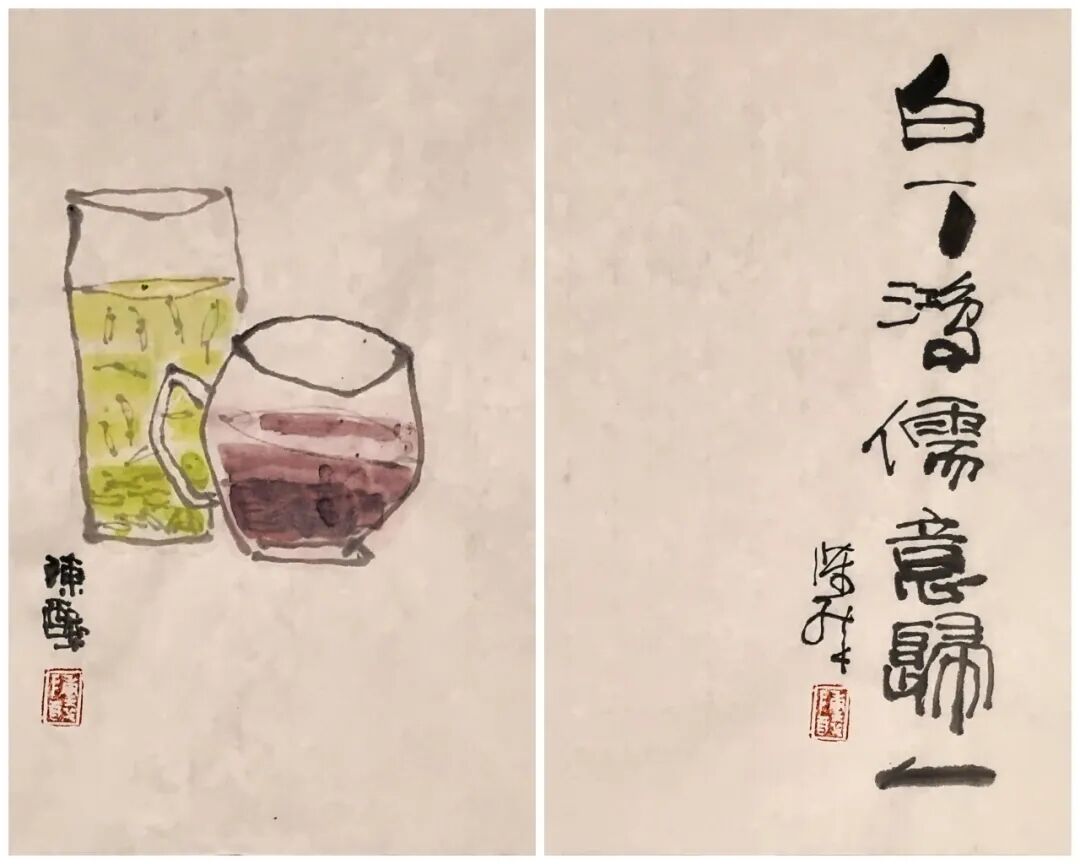 陳醉
白丁鴻儒意歸一
陈醉